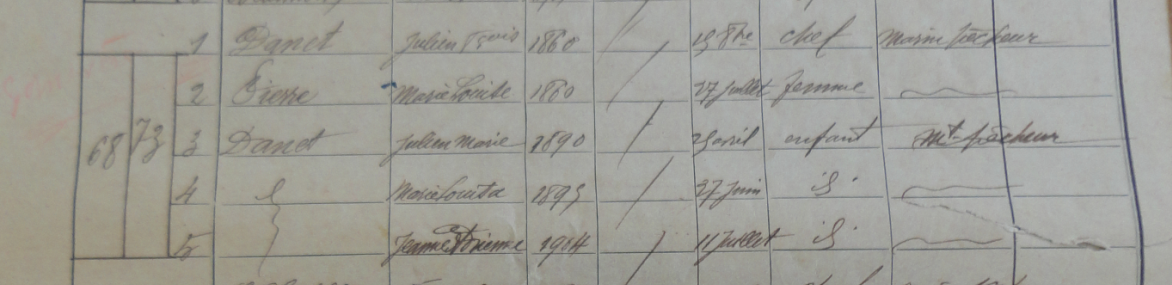 1 Danet Julien Fçois 1860 / 19 8bre chef marin pêcheur
2 Pierre Marie Louise 1860 / 27 Juillet femme
68 73 3 Danet Julien Marie 1890 / avril enfant mt-pêcheur
4 Marie Louise 1895 / 27 Juin id
5 Jeanne 1904 / 11 Juillet id